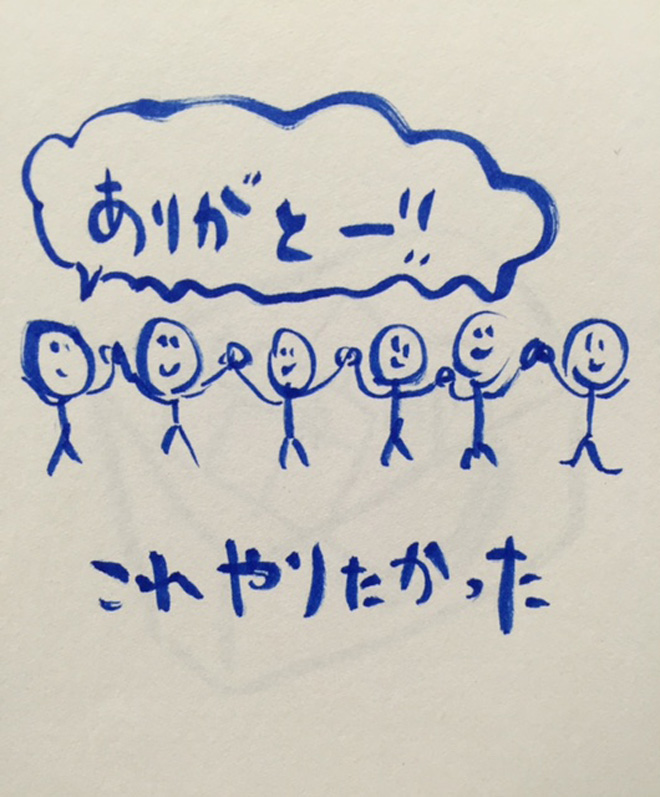 ありがとー!!
これやりたかった